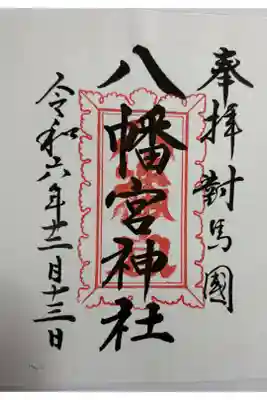 奉拝對馬國
八幡宮神社
令和六年十二月十三日